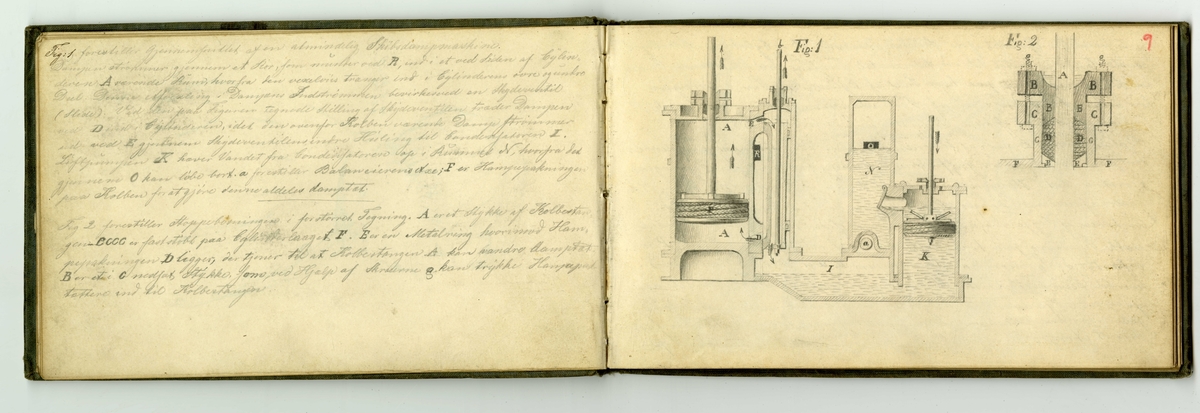 Fig: 1 forestiller Gjennemsnittet af en almindelig Skibsdampmaskine.
Dampen strømmer gjennem et Rør, som munder ved R, ind i et ved Siden af Cylin-
deren A værende Rum, hvorfra den vexelvis trænger ind i Cylinderens øvre og nedre
Deel. Denne i Dampens Indstrømmen bevirkes ved en Skyderventil
(Slide). Ved den paa Figuren tegnede Stilling af Skyderventilen træder Dampen
ved D ind i Cylinderen, idet den ovenfor Kolben værende Damp strømmer
ud ved E gjennem Skyderventilens indre Huulning til Condensatoren I.
Luftpumpen K hæver Vandet fra Condensatoren op i Rummet N, hvorfra det
gjennem O kan løbe bort. a forestiller Balanceerens Axe; F er Hampepakningen
paa Kolben for at gjøre denne aldeles damptæt.
Fig 2 forestiller Stoppebøsningen i forstørret Tegning. A er et Stykke af Kolbestan-
gen. BCCC er faststøbt paa Cylinderlaaget F. E er en Metalring hvorimod Ham-
pepakningen D lægges, der tjener til at Kolbestangen A kan vandre damptæt.
B er et i G nedsat Stykke, som ved Hjelp af Skruerne g kan trykke Hampepak
tættere ind til Kolbestangen.
Fig: 1
Fig: 2
9
A
A
F
E
R
D
N
O
a
I
J
K
A
B
B
B
B
D
D
G
G
G
G
E
E
F
F
g
g